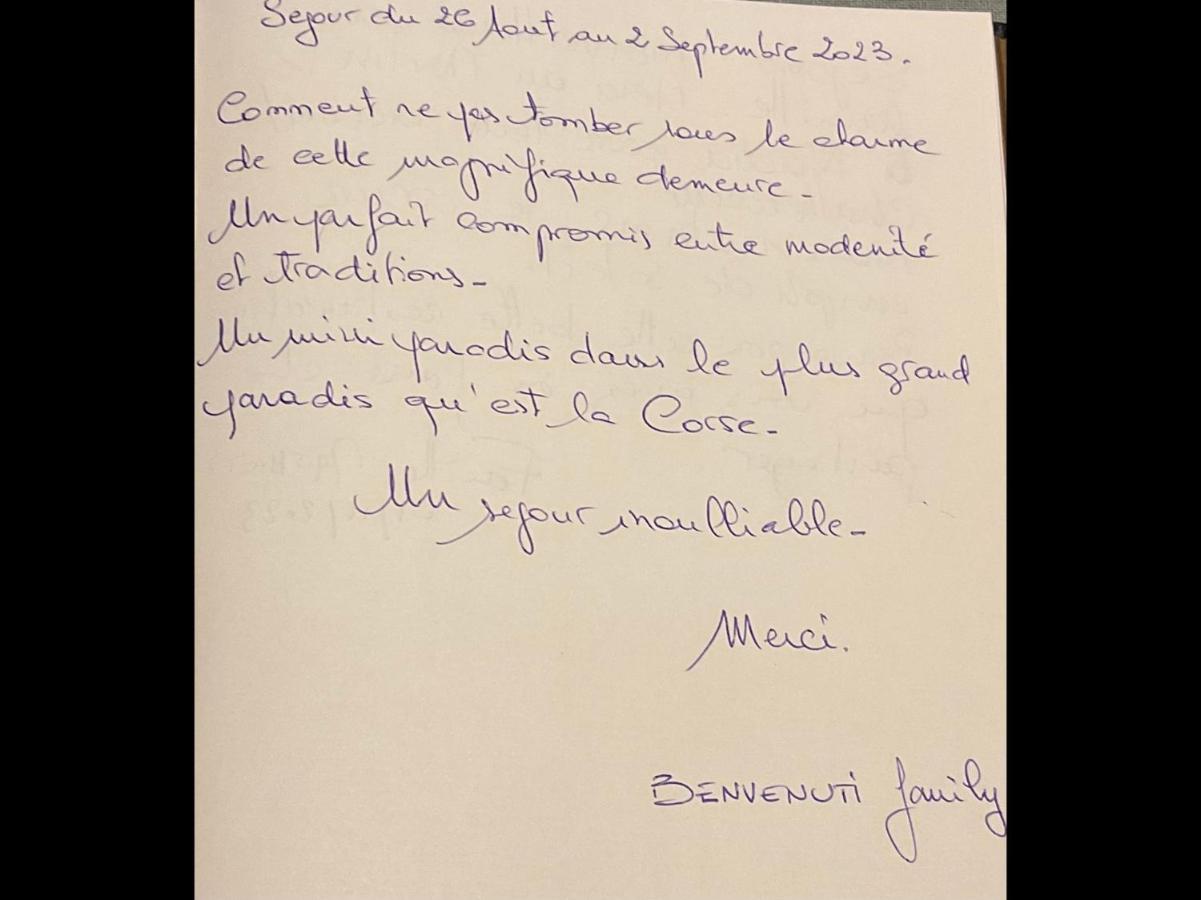 Sejour du 26 Aout au 2 Septembre 2023.
Comment ne pas tomber sous le charme
de cette magnifique demeure -
Un parfait compromis entre modenité
et traditions -
Un mini paradis dans le plus grand
paradis qu'est la Corse -
Un sejour inoulliable -
Merci.
BENVENUTI family